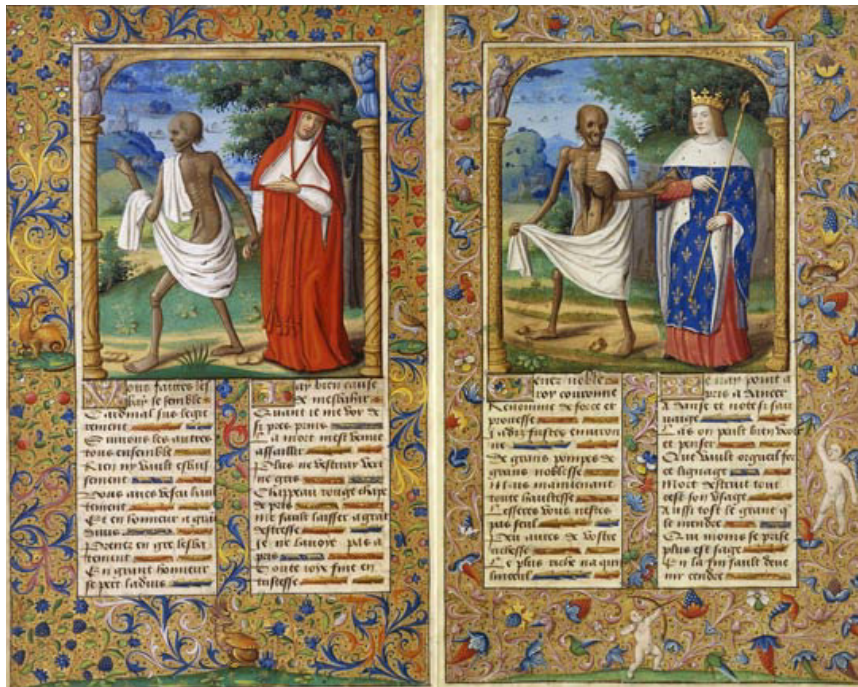 Vous faictes les
bahy se semble
Cardinal sus legie
rement
Suivons les autres
tous ensemble
Rien ny vault esbahis
sement
Vous avez vescu haul
tement
Et en honneur a grant
Prenez en gre lesba
tement
En grant honneur
se pert ladvis
Jay bien cause
de mesbahir
Quant ie me voy de
si pres prins
La mort mest venue
assaillir
Plus ne vestiray vert
ne gris
Chappeau rouge chape
de pris
me fault laisser a grant
destresse
ie ne lavoye pas a
pris
Toute ioye fine en
tristesse
Venez noble
roy couronne
Renomme de force et
prouesse
Iadis fustes environ
ne
De grans pompes de
grant noblesse
Mais maintenant
toute haultesse
Lesseres vous nestes
pas seul
Peu aures de vostre
richesse
Le plus riche na qun
linceul
Ie nay point a
pris a dancer
A danse et note si sau
vaige
Las on peult bien veoir
et penser
Que vault orgueil force
et lignage
Mort destruit tout
cest son usage
Aussi tost le grant que
le mendre
Qui moins se prise
plus est sage
En la fin fault deve
nir cendre